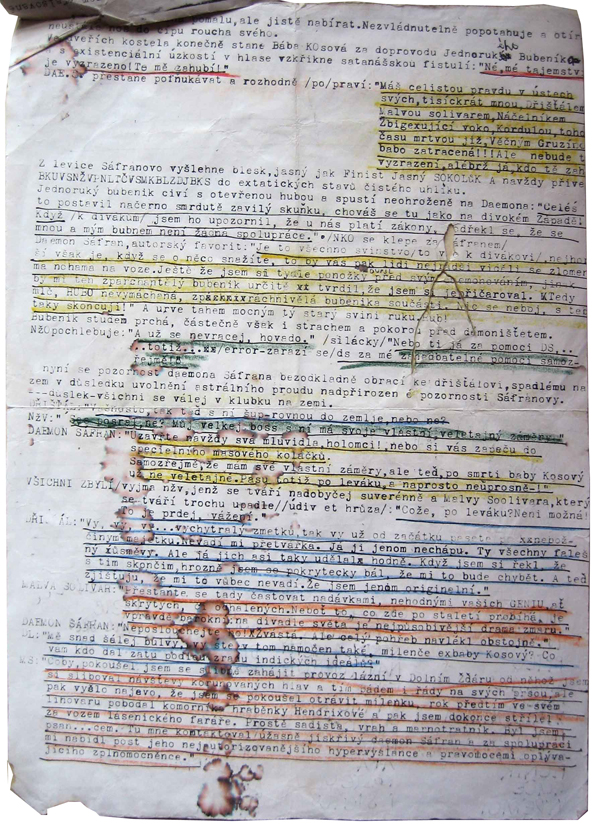 pomalu,ale jistě nabírat.Nezvládnutelně popotahuje a otír
do cípu roucha svého.
dveřích kostela konečně stane Bába KOsová za doprovodu Jednoruk Bubeník
s existenciální úzkostí v hlase vzkřikne satanášskou fistulí:"Né,mé tajemstv
je vyzrazeno!Te mě zahubí!"
přestane poťnukávat a rozhodně /po/praví:"Máš celistou pravdu v ústech
svých,tisíckrát mnou,Dřištálem
Malvou solivarem,Náčelníkem
Zbigexující voko,Kordulou,toho
času mrtvou již,Věčným Gruzín
babo zatracená!!!Ale nebude t
vyzrazení,alébrž já,kdo tě zah
Z levice Šáfranovo vyšlehne blesk,jasný jak Finist Jasný SOKOLÍK A navždy příve
BKUVSNŽVHNLTČVSMKBLZZDJBKS do extatických stavů čistého uhlíku.
Jednoruký bubeník civí s otevřenou hubou a spustí neohroženě na Daemona:"Celéš
to postavil načerno smrdutě zavilý skuňku, chováš se tu jako na divokém Západě!
Když /k divákum/ jsem ho upozornil, že u nás platí zákony, odřekl se, že se
mnou a mým bubnem není žádná spolupráce."./NKO se klepe za Šafránem/
Daemon Šafran,autorský favorit:"Je to všecno svinstvo/to v k divákovi/,nejhor
ší však je, když se o něco snažíte, to by vás pak lidi nejradši viděli se zlomen
ma nohama na voze.Ještě že jsem si tydle ponožky před svým démonováním, jinak
by mi ten zparchantělý bubeník určitě tvrdil,že jsem si je přičaroval. MTedy
mlč, HUBO nevymáchaná, chnivělá bubeníka součásti. Nic se neboj, s ten
taky skoncuji!" A urve tahem mocným tý starý svini ruku. ub!
Bubeník studem prchá, částečně však i strachem a pokorou před démoništětem.
NŽOpochlebuje:"A už se nevracej, hovado." /sílácky/"Nebo ti já za pomoci DŠ...
totiž.. /error-zarazí se/ds za mé zadobatelné pomoci samoz-
rejmě!
nyní se pozornost daemona Šáfrana bezodkladně obrací ke dříštálovi,spadlému na
zem v důsledku uvolnění astrálního proudu nadpřirozen pozornosti Šáfranovy.
-důslek-všichni se válej v klubku na zemi.
s ní šup-rovnou do zemlje,nebo ne?
NŽV:" ne? Můj velkej boss s ní má svoje vlastní veletajný záměry."
DAEMON ŠÁFRÁN:"Uzavíte navždy svá mluvidla,holomci!,nebo si vás zapáču do
specielního masového kolíčku.
Samozřejmě,že mám své vlastní záměry,ale teď,po smrti baby Kosový
už ne veletajné.Pasu totiž po leváku,a naprosto neúprosně.!"
VŠICHNI ZBYLÍ/vyjma nžv,jenž se tváří nadobyčej suverénně a Malvy Soolivara,který
se tváří trochu upadle//údiv et hrůza/:"Cože, po leváku?Není možná!
je prdej. vážení."
DŘIŠ ÁL:"Vy, vychytralý zmetku,tak vy už od začátku
činým zmetku.Nevadí mi přetvářka. Já jí jenom nechápu. Ty všechny faleš
ný xúsměvy. Ale já jich asi taky udělalx hodně. Když jsem si řekl, že
s tím skončím,hrozně jsem se pokrytecky bál, že mi to bude chybět. A teď
zjištuju, že mi to vůbec nevadí.Že jsem jenom originální."
MALVA SOLIVAR:"Přestante se tady častovat nadávkami nehodnými vašich GENIÍ,ať
skrytých, obnalených.Neboť to, co zde po staletí probíhá, je
vpravdě barokní na divadle světa je nejpůsobivější drama zmaru."
DAEMON ŠÁFRAN:"Neposlouchejte ho!XZvastá.Ale celý pohřeb navlékl obstojně."
DL:"Mě snad šálej bulvy, vy ste v tom namočen také, milenče exbaby Kosový?Co
vám kdo dal zatu podlou zradu indických ideálů?"
MS:"Coby,pokoušel jsem se slibně zahájit provoz lázní v Dolním Zdáru od něhož jsem
si sliboval návštěvy korunovaných hlav a tím pádem i řády na svých prsou,ale
pak vyšlo najevo, že jsem se pokoušel otrávit milenku, rok předtím ve svém
linovaru pobodal komorní hraběnky Hendrixové a pak jsem dokonce střílel z
ze vozem Jásenického faráře. Prostě sadista, vrah a marnotratník. Byl jsem
psan...cu. Tu mně kontaktoval úžasná jiskřivý daemon Šafran a za spolupráci
mi nabídl post jeho nejautorizovanějšího hypervýslance a pravomocemi oplýva-
jícího zplnomocněnce."